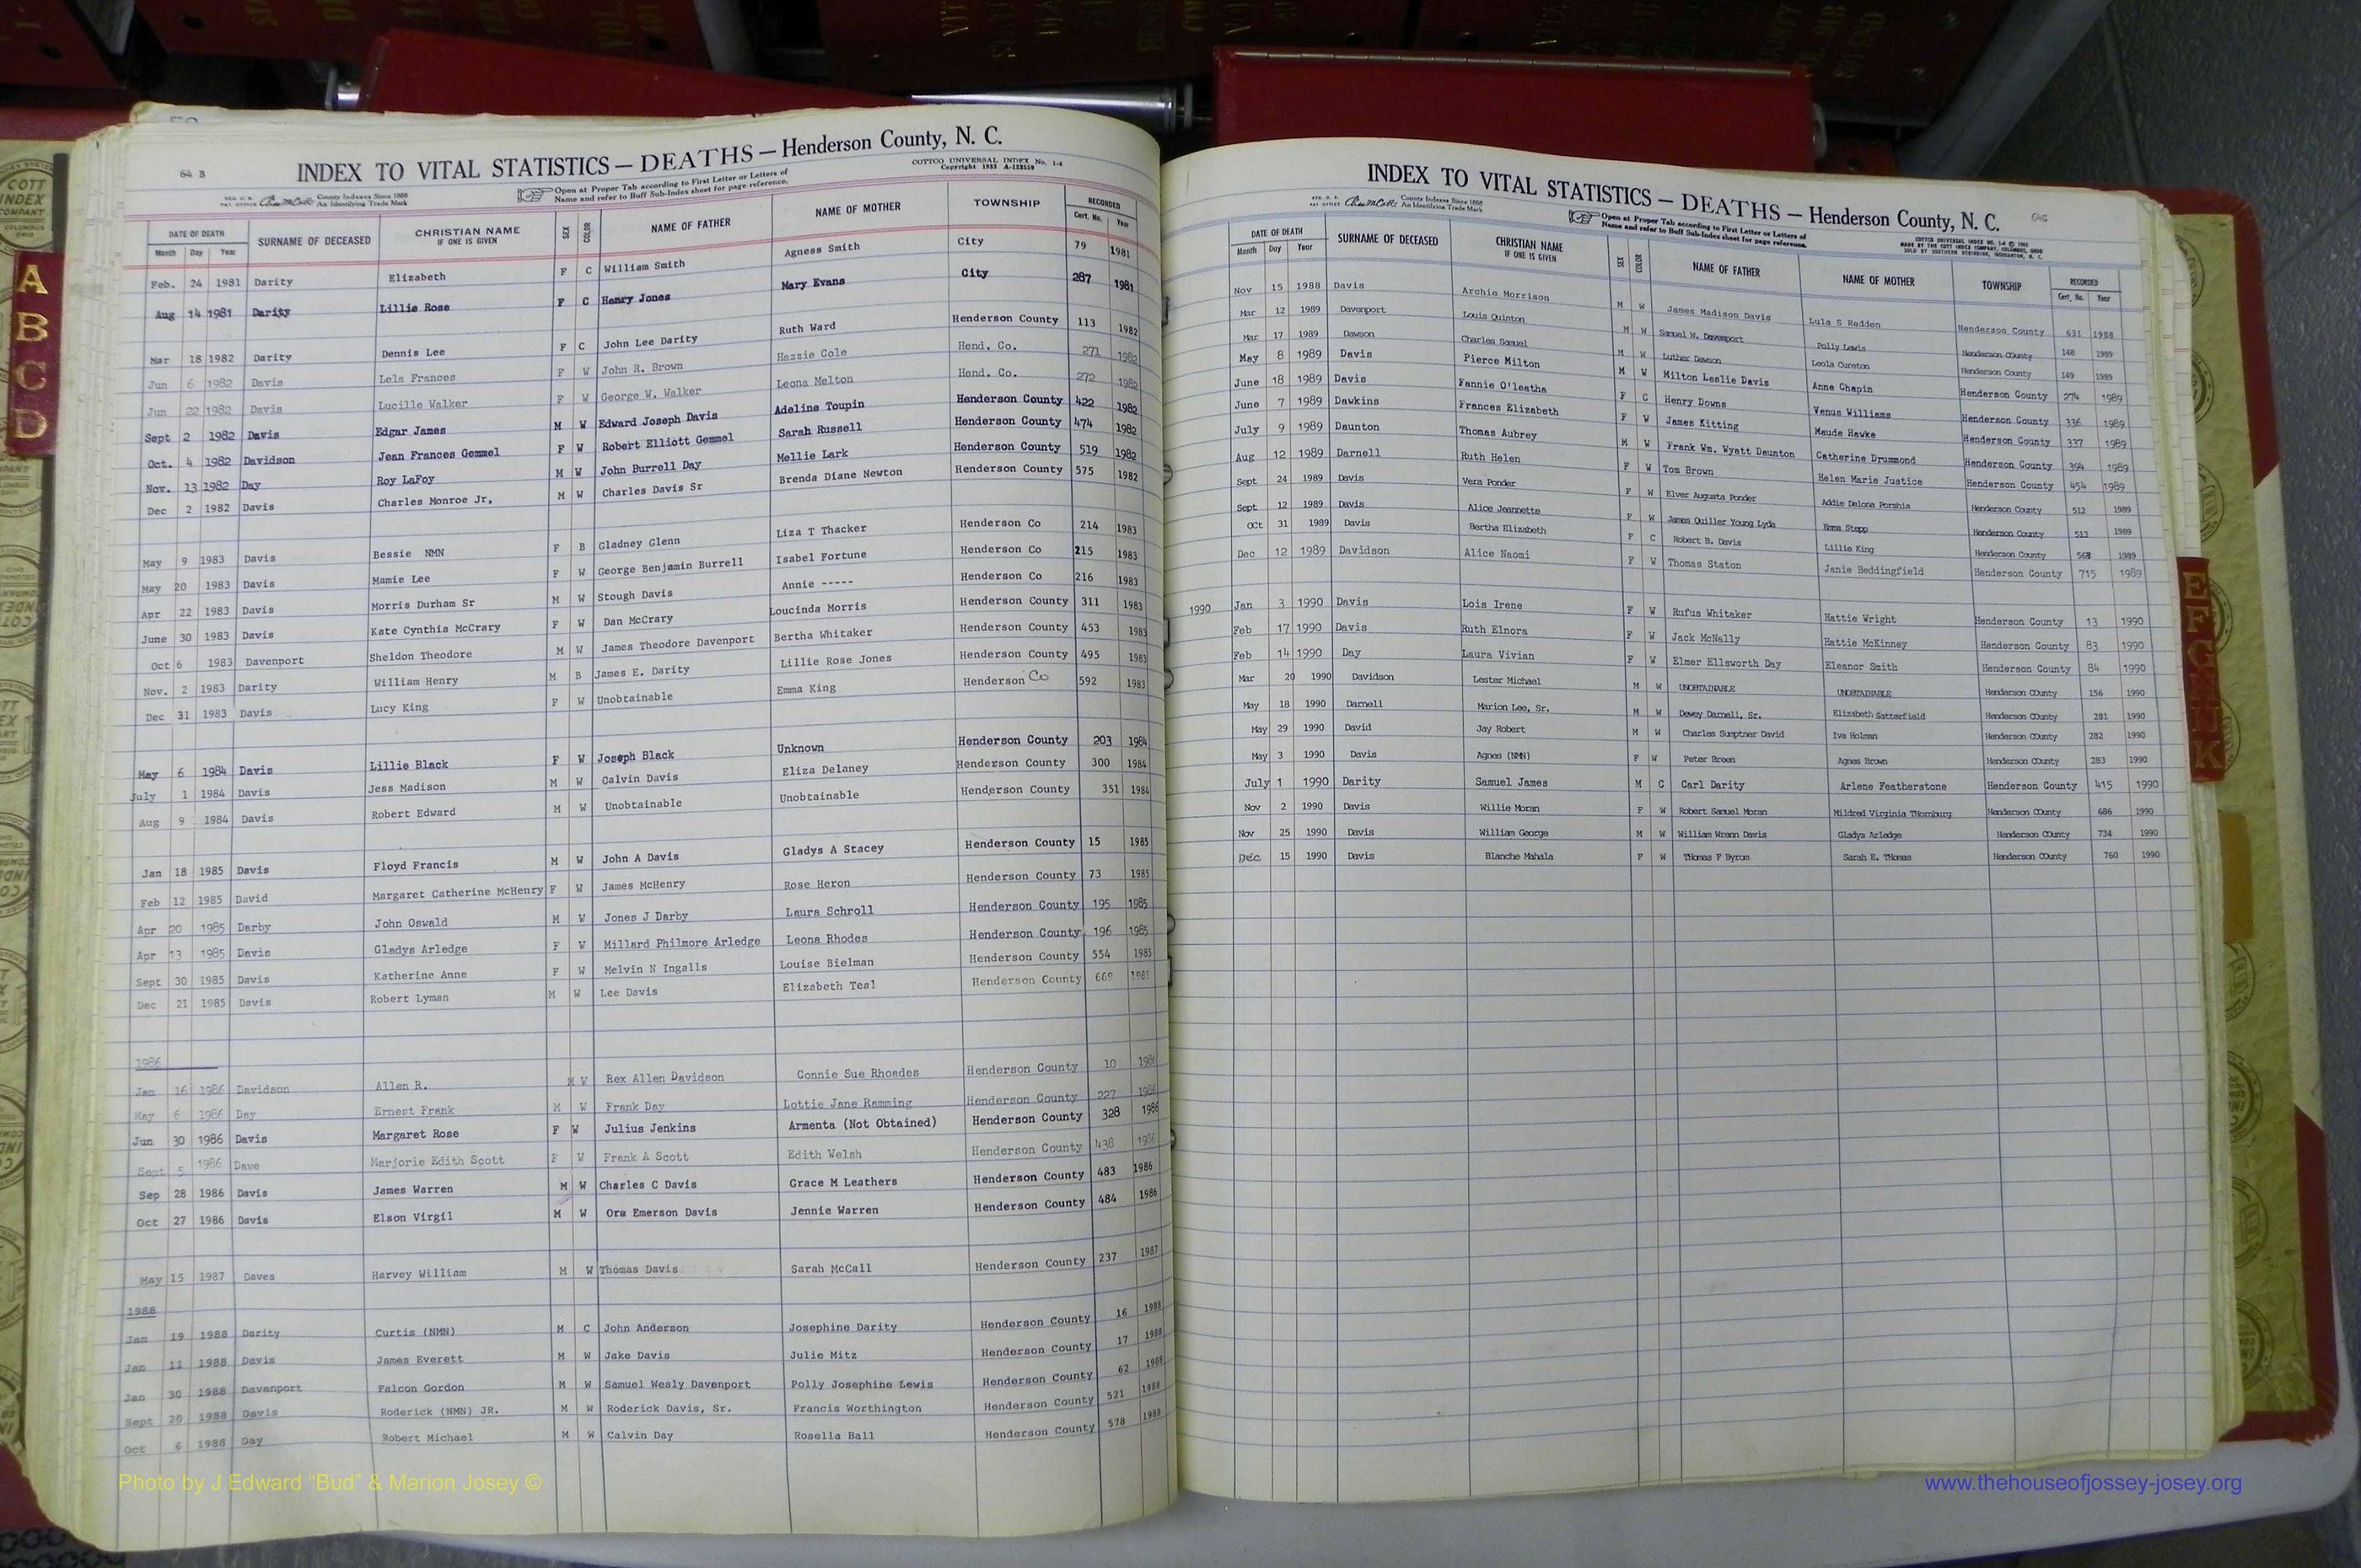 64 B
INDEX TO VITAL STATISTICS — DEATHS — Henderson County, N. C.
COTTCO UNIVERSAL INDEX No. 1-4
Copyright 1933 A-123510
County Indexes Since 1888
An Identifying Trade Mark
Open at Proper Tab according to First Letter or Letters of
Name and refer to Buff Sub-Index sheet for page reference.
DATE OF DEATH SURNAME OF DECEASED CHRISTIAN NAME IF ONE IS GIVEN SEX COLOR NAME OF FATHER NAME OF MOTHER TOWNSHIP RECORDED
Month Day Year Cert. No. Year
Feb. 24 1981 Darity Elizabeth F C William Smith Agness Smith City 79 1981
Aug 14 1981 Darity Lillie Rose F C Henry Jones Mary Evans City 287 1981
Mar 18 1982 Darity Dennis Lee F C John Lee Darity Ruth Ward Henderson County 113 1982
Jun 6 1982 Davis Lela Frances F W John R. Brown Hazzie Cole Hend. Co. 271 1982
Jun 22 1982 Davis Lucille Walker F W George W. Walker Leona Melton Hend. Co. 272 1982
Sept 2 1982 Davis Edgar James M W Edward Joseph Davis Adeline Toupin Henderson County 422 1982
Oct. 4 1982 Davidson Jean Frances Gemmel F W Robert Elliott Gemmel Sarah Russell Henderson County 474 1982
Nov. 13 1982 Day Roy LaFoy M W John Burrell Day Mellie Lark Henderson County 519 1982
Dec 2 1982 Davis Charles Monroe Jr, M W Charles Davis Sr Brenda Diane Newton Henderson County 575 1982
May 9 1983 Davis Bessie NMN F B Gladney Glenn Liza T Thacker Henderson Co 214 1983
May 20 1983 Davis Mamie Lee F W George Benjamin Burrell Isabel Fortune Henderson Co 215 1983
Apr 22 1983 Davis Morris Durham Sr M W Stough Davis Annie ----- Henderson Co 216 1983
June 30 1983 Davis Kate Cynthia McCrary F W Dan McCrary Loucinda Morris Henderson County 311 1983
Oct 6 1983 Davenport Sheldon Theodore M W James Theodore Davenport Bertha Whitaker Henderson County 453 1983
Nov. 2 1983 Darity William Henry M B James E. Darity Lillie Rose Jones Henderson County 495 1983
Dec 31 1983 Davis Lucy King F W Unobtainable Emma King Henderson Co 592 1983
May 6 1984 Davis Lillie Black F W Joseph Black Unknown Henderson County 203 1984
July 1 1984 Davis Jess Madison M W Calvin Davis Eliza Delaney Henderson County 300 1984
Aug 9 1984 Davis Robert Edward M W Unobtainable Unobtainable Henderson County 351 1984
Jan 18 1985 Davis Floyd Francis M W John A Davis Gladys A Stacey Henderson County 15 1985
Feb 12 1985 David Margaret Catherine McHenry F W James McHenry Rose Heron Henderson County 73 1985
Apr 20 1985 Darby John Oswald M W Jones J Darby Laura Schroll Henderson County 195 1985
Apr 13 1985 Davis Gladys Arledge F W Millard Philmore Arledge Leona Rhodes Henderson County 196 1985
Sept 30 1985 Davis Katherine Anne F W Melvin N Ingalls Louise Bielman Henderson County 554 1985
Dec 21 1985 Davis Robert Lyman M W Lee Davis Elizabeth Teal Henderson County 669 1985
1986
Jan 16 1986 Davidson Allen R. M W Rex Allen Davidson Connie Sue Rhoades Henderson County 10 1986
May 6 1986 Day Ernest Frank M W Frank Day Lottie Jane Ramming Henderson County 227 1986
Jun 30 1986 Davis Margaret Rose F W Julius Jenkins Armenta (Not Obtained) Henderson County 328 1986
Sept 5 1986 Dave Marjorie Edith Scott F W Frank A Scott Edith Welsh Henderson County 438 1986
Sep 28 1986 Davis James Warren M W Charles C Davis Grace M Leathers Henderson County 483 1986
Oct 27 1986 Davis Elson Virgil M W Ora Emerson Davis Jennie Warren Henderson County 484 1986
May 15 1987 Daves Harvey William M W Thomas Davis Sarah McCall Henderson County 237 1987
1988
Jan 19 1988 Darity Curtis (NMN) M C John Anderson Josephine Darity Henderson County 16 1988
Jan 11 1988 Davis James Everett M W Jake Davis Julie Mitz Henderson County 17 1988
Jan 30 1988 Davenport Falcon Gordon M W Samuel Wesly Davenport Polly Josephine Lewis Henderson County 62 1988
Sept 20 1988 Davis Roderick (NMN) JR. M W Roderick Davis, Sr. Francis Worthington Henderson County 521 1988
Oct 6 1988 Day Robert Michael M W Calvin Day Rosella Ball Henderson County 578 1988
INDEX TO VITAL STATISTICS — DEATHS — Henderson County, N. C.
County Indexes Since 1888
An Identifying Trade Mark
Open at Proper Tab according to First Letter or Letters of
Name and refer to Buff Sub-Index sheet for page reference.
DATE OF DEATH SURNAME OF DECEASED CHRISTIAN NAME IF ONE IS GIVEN SEX COLOR NAME OF FATHER NAME OF MOTHER TOWNSHIP RECORDED
Month Day Year Cert. No. Year
Nov 15 1988 Davis Archie Morrison M W James Madison Davis Lula S Redden Henderson County 631 1988
Mar 12 1989 Davenport Louis Quinton M W Samuel W. Davenport Polly Lewis Henderson County 148 1989
Mar 17 1989 Dawson Charles Samuel M W Luther Dawson Leola Cureton Henderson County 149 1989
May 8 1989 Davis Pierce Milton M W Milton Leslie Davis Anne Chapin Henderson County 274 1989
June 18 1989 Davis Fannie O'leatha F C Henry Downs Venus Williams Henderson County 336 1989
June 7 1989 Dawkins Frances Elizabeth F W James Kitting Maude Hawke Henderson County 337 1989
July 9 1989 Daunton Thomas Aubrey M W Frank Wm. Wyatt Daunton Catherine Drummond Henderson County 394 1989
Aug 12 1989 Darnell Ruth Helen F W Tom Brown Helen Marie Justice Henderson County 454 1989
Sept 24 1989 Davis Vera Ponder F W Elver Augusta Ponder Addie Delona Porshia Henderson County 512 1989
Sept 12 1989 Davis Alice Jeannette F W James Quiller Young Lyda Emma Stepp Henderson County 513 1989
Oct 31 1989 Davis Bertha Elizabeth F C Robert B. Davis Lillie King Henderson County 563 1989
Dec 12 1989 Davidson Alice Naomi F W Thomas Staton Janie Beddingfield Henderson County 715 1989
1990 Jan 3 1990 Davis Lois Irene F W Rufus Whitaker Hattie Wright Henderson County 13 1990
Feb 17 1990 Davis Ruth Elnora F W Jack McNally Hattie McKinney Henderson County 83 1990
Feb 14 1990 Day Laura Vivian F W Elmer Ellsworth Day Eleanor Smith Henderson County 84 1990
Mar 20 1990 Davidson Lester Michael M W UNOBTAINABLE UNOBTAINABLE Henderson COunty 156 1990
May 18 1990 Darnell Marion Lee, Sr. M W Dewey Darnell, Sr. Elizabeth Satterfield Henderson COunty 281 1990
May 29 1990 David Jay Robert M W Charles Sumptner David Iva Holman Henderson COunty 282 1990
May 3 1990 Davis Agnes (NMN) F W Peter Breen Agnes Brown Henderson COunty 283 1990
July 1 1990 Darity Samuel James M C Carl Darity Arlene Featherstone Henderson County 415 1990
Nov 2 1990 Davis Willie Moran F W Robert Samuel Moran Mildred Virginia THornburg Henderson COunty 686 1990
Nov 25 1990 Davis William George M W William Wrenn Davis Gladys Arledge Henderson COunty 734 1990
Dec 15 1990 Davis Blanche Mahala F W THomas F Byrom Sarah E. THomas Henderson COunty 760 1990
A
B
C
D
E
F
G
K
COTT
INDEX
COMPANY
COLUMBUS
OHIO
Photo by J Edward “Bud” & Marion Josey ©
www.thehouseofjossey-josey.org